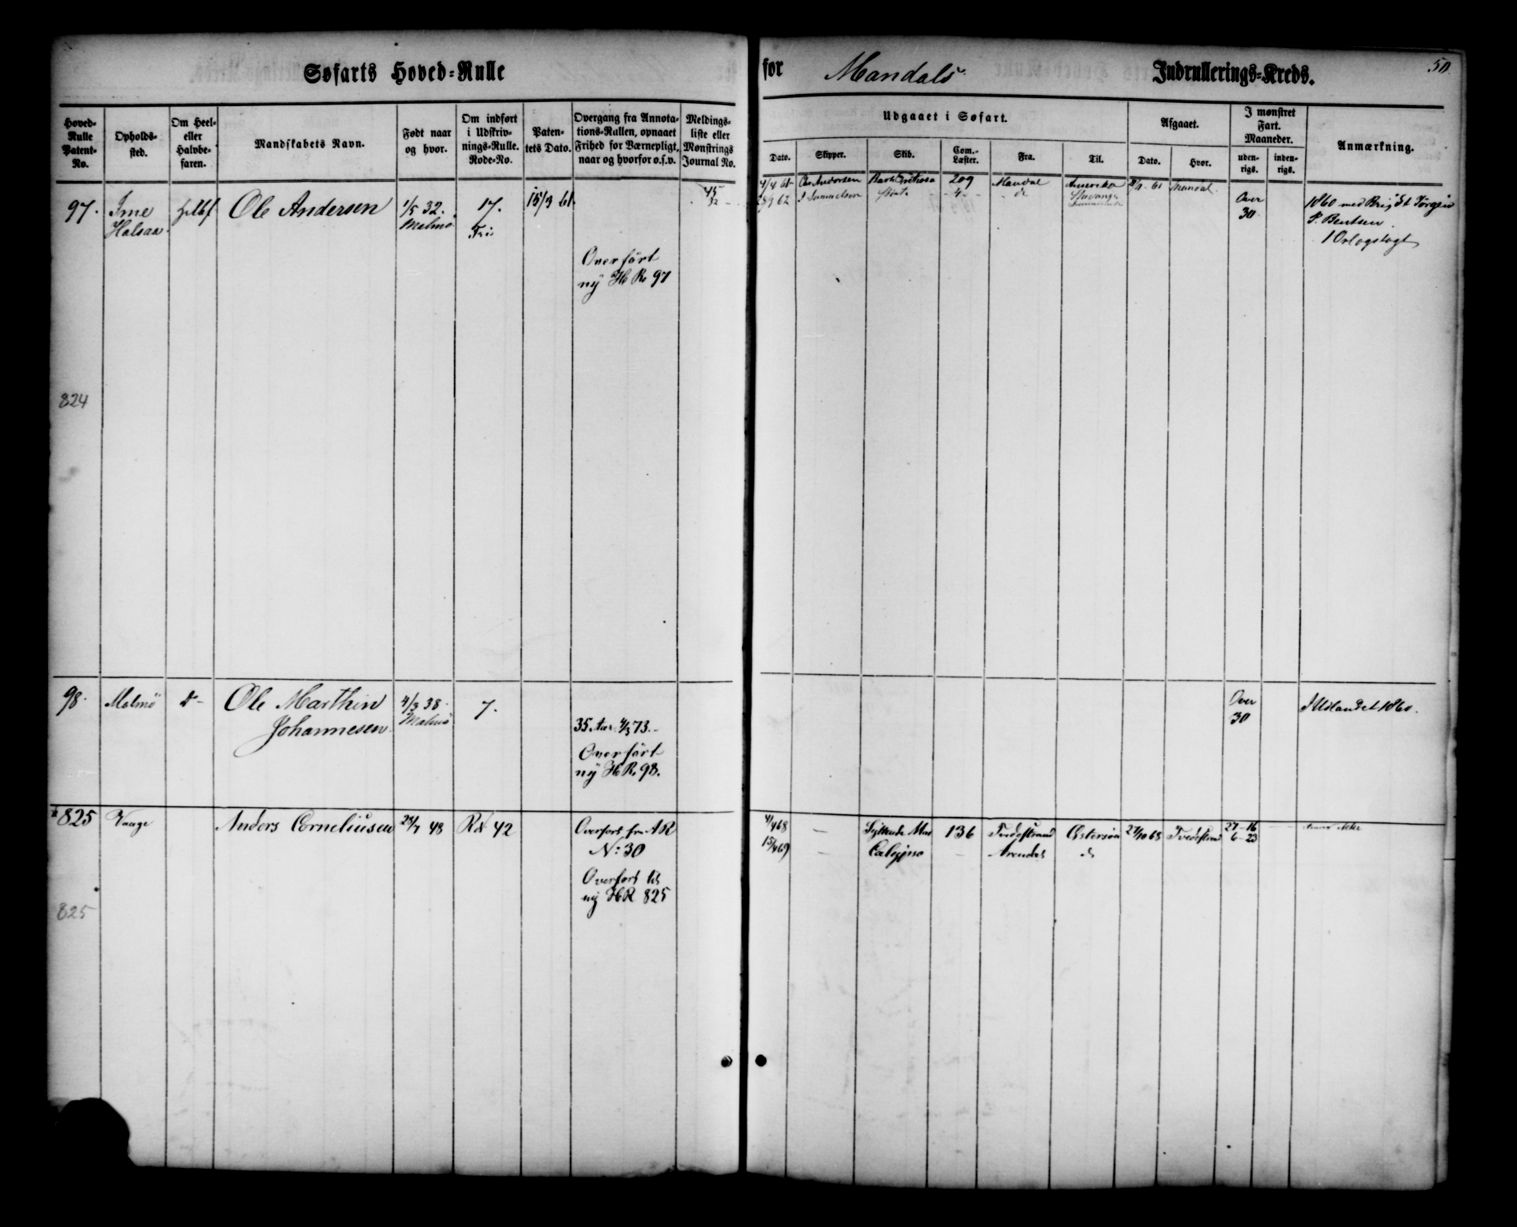 Søfarts Hoved-Rulle
for Mandals Indrullerings-Kreds.
50
Hoved-
Rulle
Patent-
No.
Opholds-
sted.
Om Heel-
eller
Halvbe-
faren.
Mandskabets Navn.
Født naar
og hvor.
Om indført
i Udskriv-
nings-Rulle.
Rode-No.
Paten-
tets Dato.
Overgang fra Annota-
tions-Rullen, opnaaet
Frihed for Værnepligt,
naar og hvorfor o.s.v.
Meldings-
liste eller
Mønstrings
Journal No.
Udgaaet i Søfart.
Dato.
Skipper.
Skib.
Com.-
Læster.
Fra.
Til.
Afgaaet.
Dato.
Hvor.
I mønstret
Fart.
Maaneder.
uden-
rigs.
inden-
rigs.
Anmærkning.
97.
Ime
Halsaa
Hlbf
Ole Andersen
1/5 32.
Malmø
17.
Fri
15/3 61.
Overført
ny H R 97
45
32
Andersen
209
Mandal
Amerika
61
Mandal
62
Stavanger
Over
30
1860 med Brig
P. Bentsen
1 Orlogstogt
824
98.
Malmø
do
Ole Marthin
Johannesen
4/3 38
Malmø
7.
35 Aar 4/3 73.
Overført
ny H R 98.
Over
30
I Udlandet 1860.
825
Vaage
Anders Corneliusen
24/7 48
Rd 42
Overført fra A R
No: 30
Overført til
ny H R 825
4/4 68
136
Tvedestrand
Østersøen
27/10 68
Tvedestrand
27-16
6-23
15/4 69
Calypso
Arendal
do
825